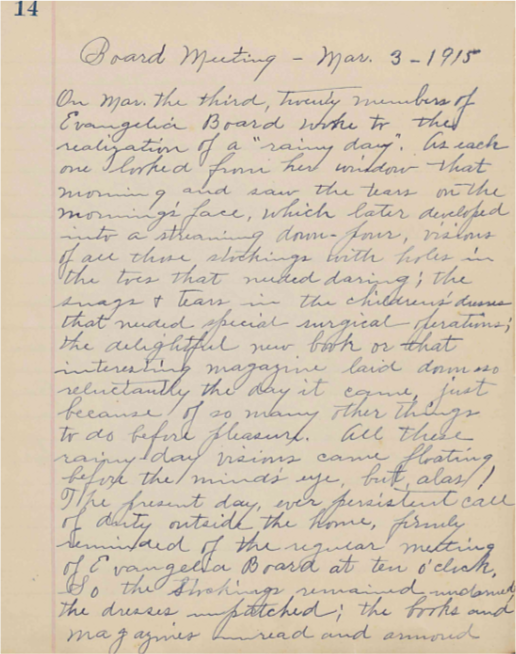 14
Board Meeting - Mar. 3 - 1915
On Mar. the third, twenty members of
Evangelia Board woke to the
realization of a "rainy day". As each
one looked from her window that
morning and saw the tears on the
morning's face, which later developed
into a streaming down-pour, visions
of all those stockings with holes in
the toes that needed daring; the
snags & tears in the childrens' dresses
that needed special surgical operations;
the delightful new book or that
interesting magazine laid down so
reluctantly the day it came, just
because of so many other things
to do before pleasure. All these
rainy-day visions came floating
before the mind's eye, but, alas!
The present day, ever persistent call
of duty outside the home, firmly
reminded of the regular meeting
of Evangelia Board at ten o'clock.
So the Stockings remained undarned,
the dresses unpatched; the books and
magazines unread and armored